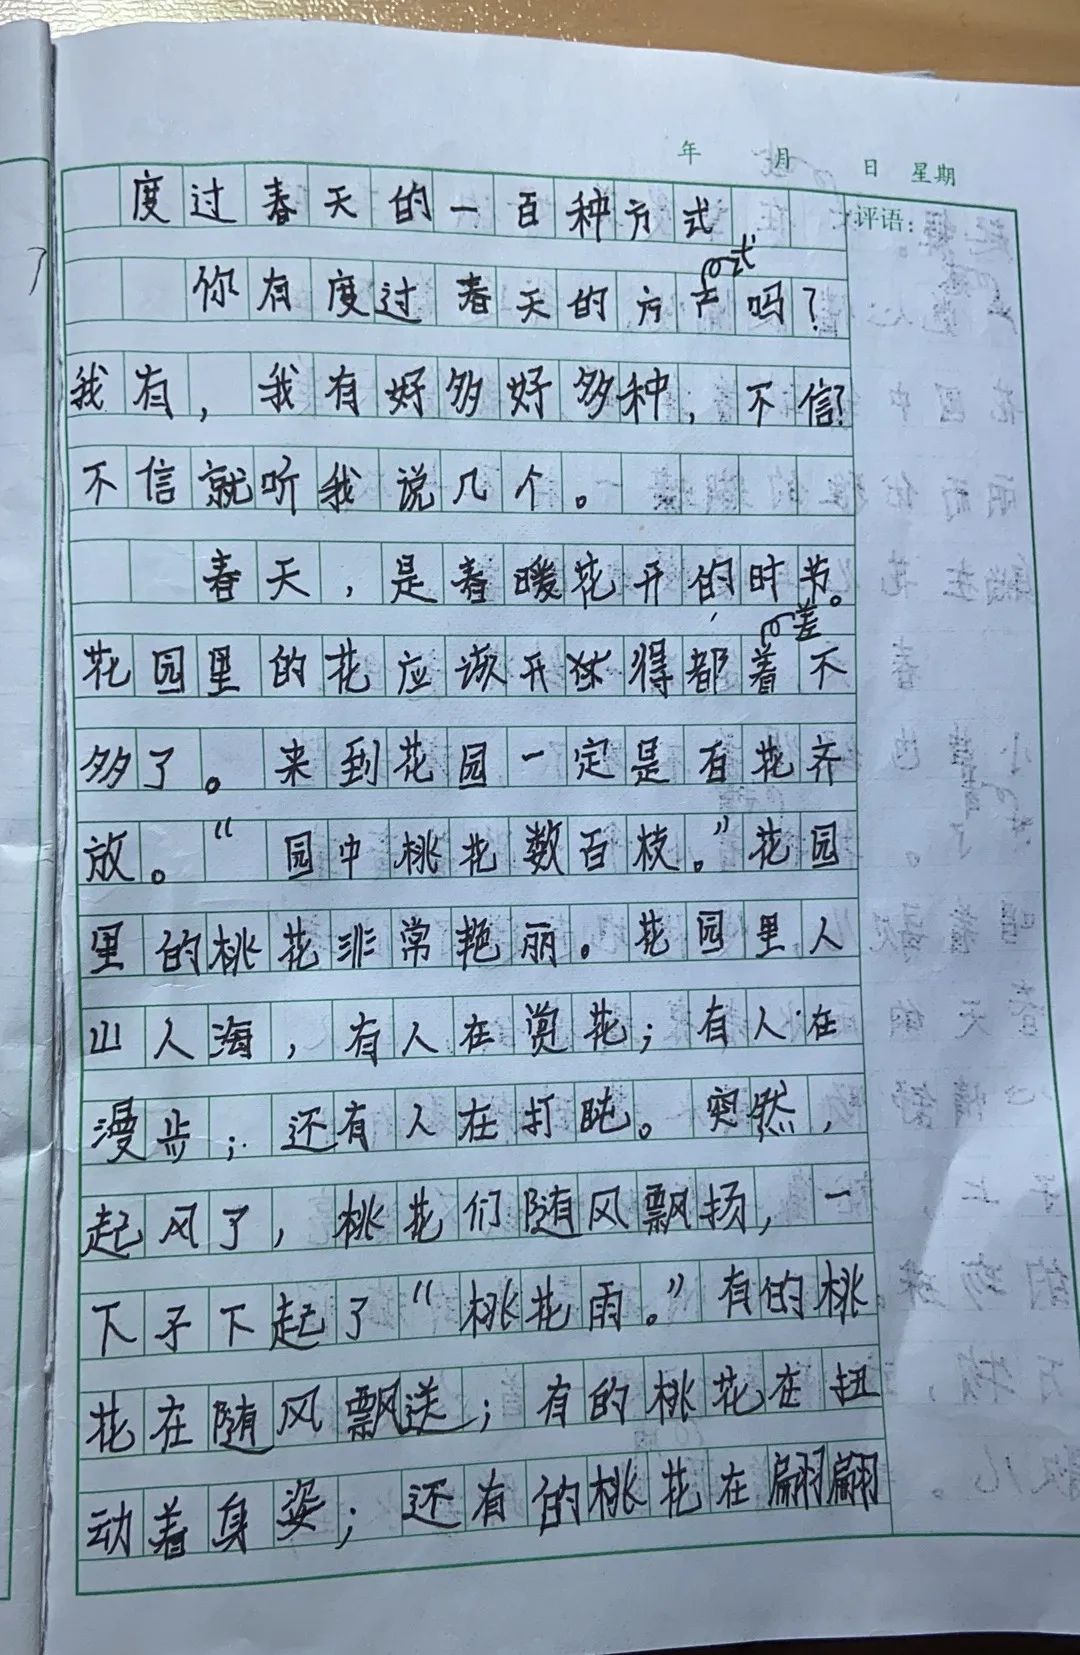 年 月 日 星期
评语：
度过春天的一百种方式
你有度过春天的方式吗？
我有，我有好多好多种，不信？
不信就听我说几个。
春天，是春暖花开的时节。
花园里的花应该开得都差不
多了。来到花园一定是百花齐
放。“园中桃花数百枝。”花园
里的桃花非常艳丽。花园里人
山人海，有人在赏花；有人在
漫步；还有人在打盹。突然，
起风了，桃花们随风飘扬，一
下子下起了“桃花雨。”有的桃
花在随风飘送；有的桃花在扭
动着身姿；还有的桃花在翩翩